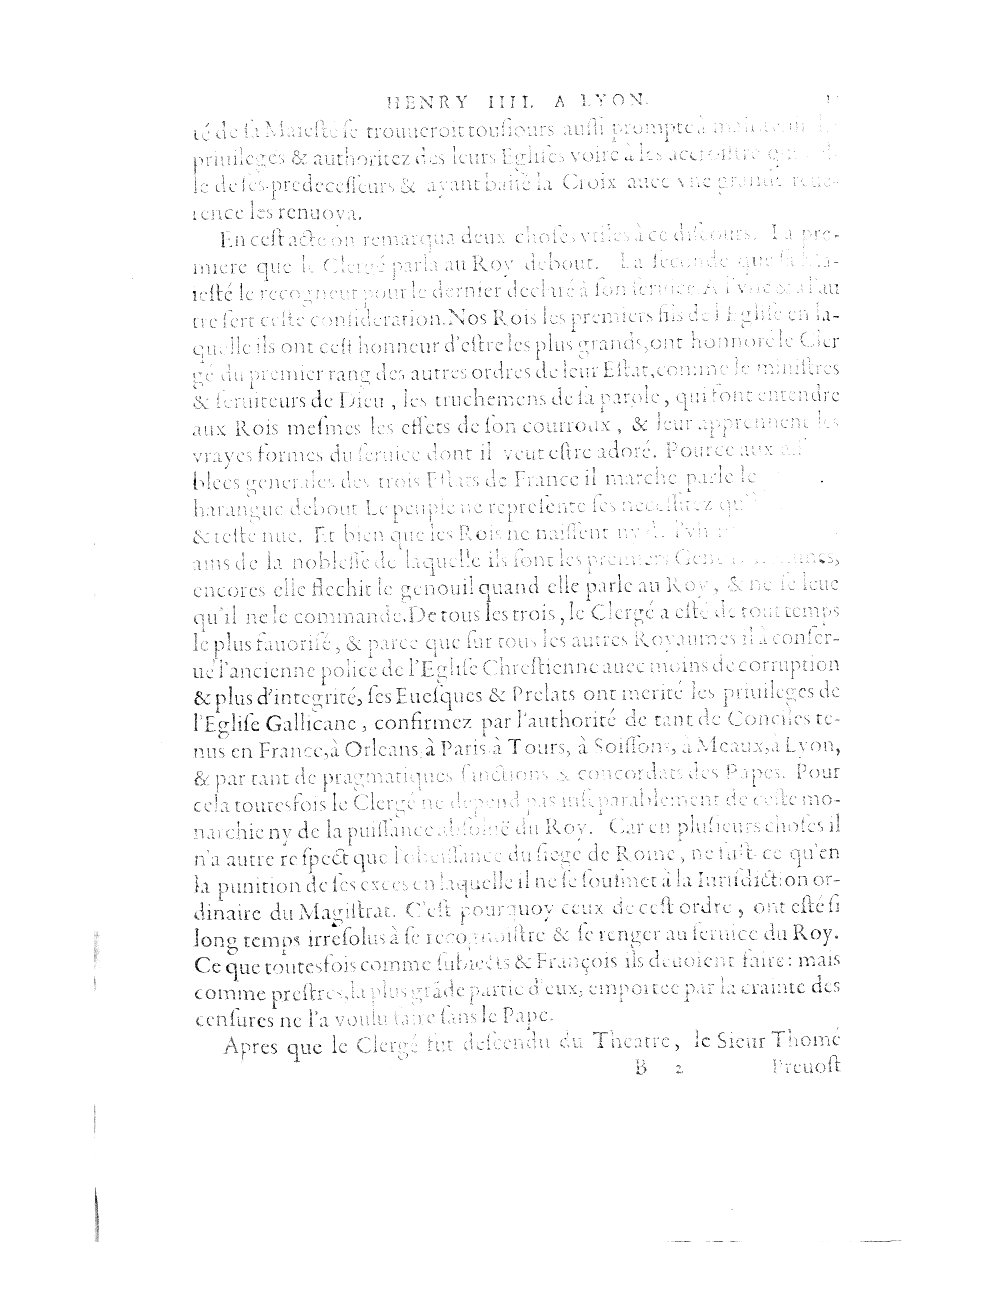 HENRY IIII. A LYON.
té de sa Maieste se trouueroit tousiours aussi prompte à
priuileges & authoritez des leurs Eglises voire à les accroistre
le de ses predecesseurs & ayant baisé la Croix auec vne grande reue-
rence les renuoya.
En cest acte on remarqua deux choses vtiles à ce discours. La pre-
miere que le Clergé parla au Roy debout. La seconde que sa Ma-
iesté le recogneut pour le dernier declaré à son seruice. A l'vne & à l'au
tre sert ceste consideration. Nos Rois les premiers fils de l'Eglise en la-
quelle ils ont cest honneur d'estre les plus grands, ont honnoré le Cler
gé du premier rang des autres ordres de leur Estat, comme le ministres
& seruiteurs de Dieu, les truchemens de sa parole, qui font entendre
aux Rois mesmes les effets de son courroux, & leur apprennent les
vrayes formes du seruice dont il veut estre adoré. Pource aux
blees generales des trois Estats de France il marche parle le
harangue debout Le peuple ne represente ses necessitez qu'
& teste nue. Et bien que les Rois ne naissent
ains de la noblesse de laquelle ils sont les premiers
encores elle flechit le genouil quand elle parle au Roy, & ne se leue
qu'il ne le commande. De tous les trois, le Clergé a esté de tout temps
le plus fauorisé, & parce que sur tous les autres Royaumes il a conser-
ué l'ancienne police de l'Eglise Chrestienne auec moins de corruption
& plus d'integrité, ses Euesques & Prelats ont merité les priuileges de
l'Eglise Gallicane, confirmez par l'authorité de tant de Conciles te-
nus en France, à Orleans à Paris à Tours, à Soissons, à Meaux, à Lyon,
& par tant de pragmatiques sanctions & concordats des Papes. Pour
cela toutesfois le Clergé ne depend pas inseparablement de ceste mo-
narchie ny de la puissance absolue du Roy. Car en plusieurs choses il
n'a autre respect que l'obeissance du siege de Rome, ne fust-ce qu'en
la punition de ses exces en laquelle il ne se sousmet à la Iurisdiction or-
dinaire du Magistrat. C'est pourquoy ceux de cest ordre, ont esté si
long temps irresolus à se recognoistre & se renger au seruice du Roy.
Ce que toutesfois comme subiects & François ils deuoient faire: mais
comme prestres, la plus gráde partie d'eux, emportee par la crainte des
censures ne l'a voulu faire sans le Pape.
Apres que le Clergé fut descendu du Theatre, le Sieur Thomé
B 2 Preuost